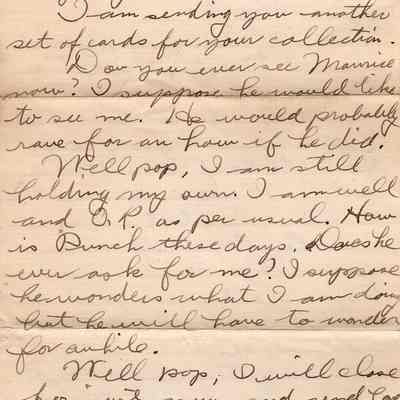 I am sending you another
set of cards for your collection.
Dov you ever see Maurice
now? I suppose he would like
to see me. He would probably
rave for an hour if he did.
Well pop, I am still
holding my own. I am well
and O.K. as per usual. How
is Punch these days. Does he
ever ask for me? I suppose
he wonders what I am doing
but he will have to wonder
for awhile.
Well pop, I will close
now and send